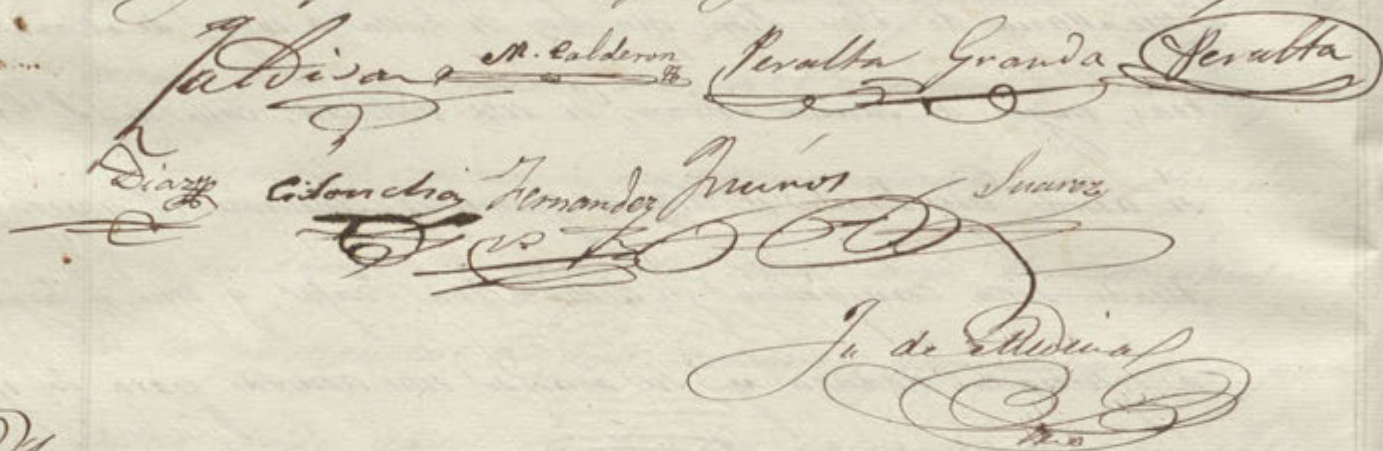 Valdivar M. Calderon Peralta Granda Peralta
Diaz Cisoncha Fernandez Suarez
Ju de Medina